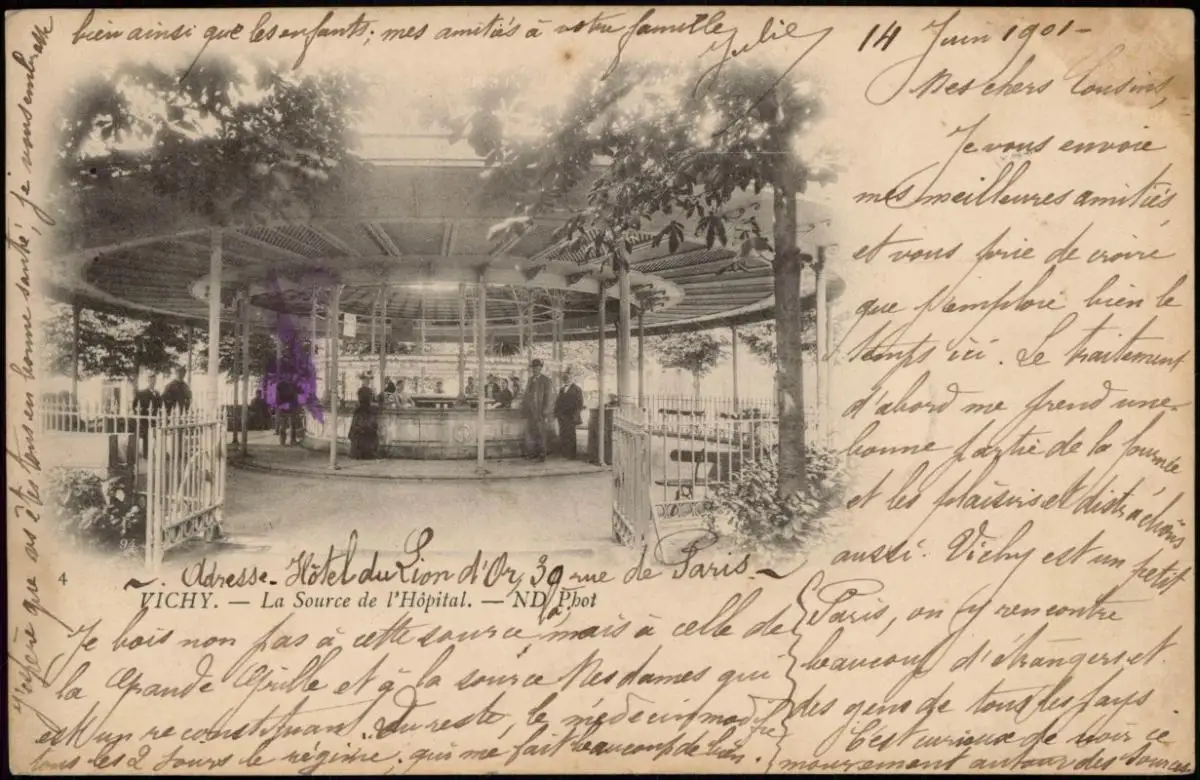 14 Juin 1901-
Mes chers Cousins,
Je vous envoie
mes meilleures amitiés
et vous prie de croire
que j'emploie bien le
temps ici. Le traitement
d'abord me prend une
bonne partie de la journée
et les plaisirs et distractions
aussi. Vichy est un petit
Paris, on y rencontre
beaucoup d'étrangers et
des gens de tous les pays
C'est curieux de voir ce
mouvement autour des sources
Adresse - Hôtel du Lion d'Or, 39 rue de Paris
94
4
VICHY. — La Source de l'Hôpital. — ND Phot
Je bois non pas à cette source, mais à celle de
la Grande Grille et à la source Mesdames qui
est un reconstituant. Du reste, le médecin modifie
tous les 2 jours le régime, qui me fait beaucoup de bien.
J'espère que vs êtes tous en bonne santé, je vous embrasse
bien ainsi que les enfants; mes amitiés à votre famille
Julie